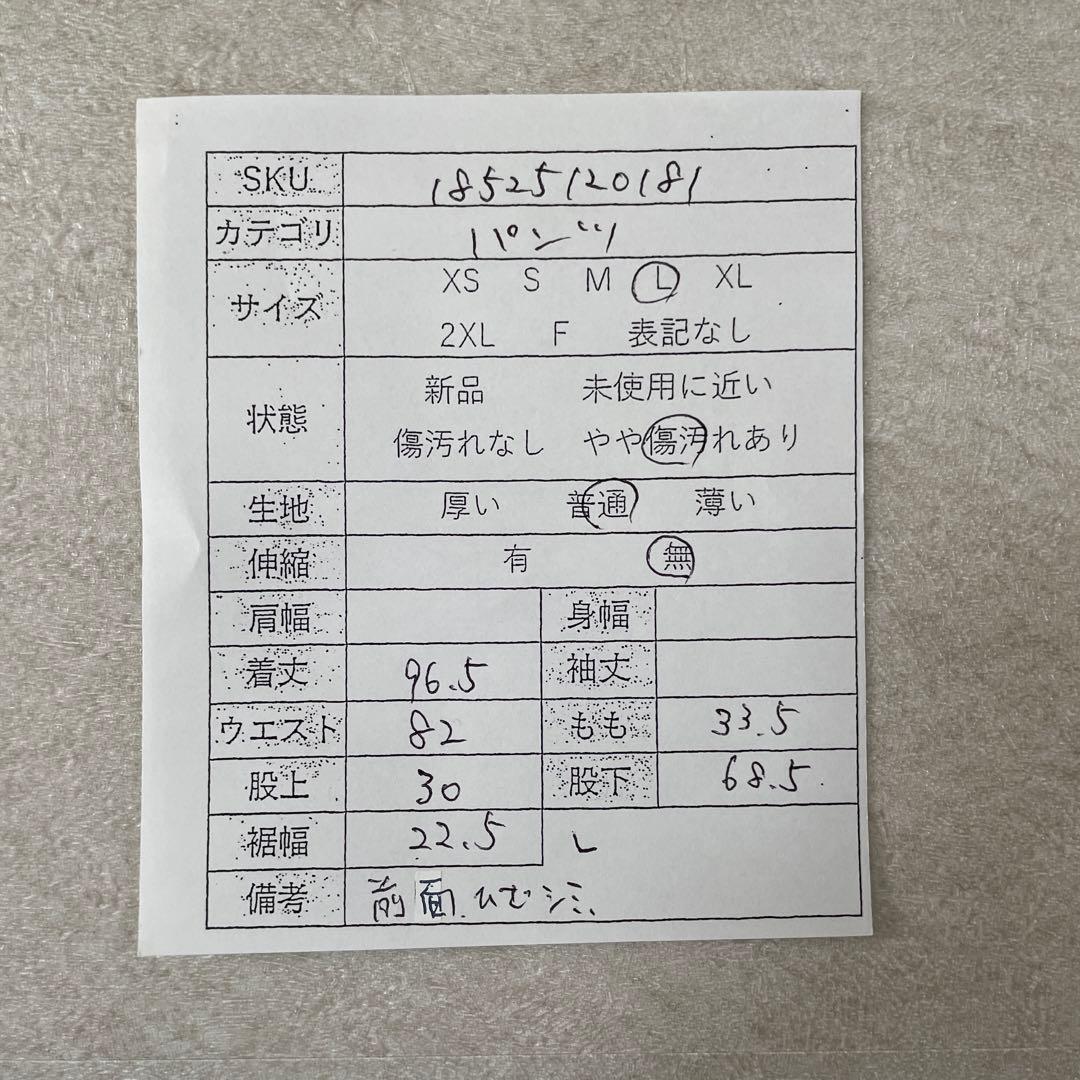 SKU 18525120181
カテゴリ パンツ
サイズ XS S M L XL
2XL F 表記なし
状態 新品 未使用に近い
傷汚れなし やや傷汚れあり
生地 厚い 普通 薄い
伸縮 有 無
肩幅 身幅
着丈 96.5 袖丈
ウエスト 82 もも 33.5
股上 30 股下 68.5
裾幅 22.5 レ
備考 前面.ひむシミ、